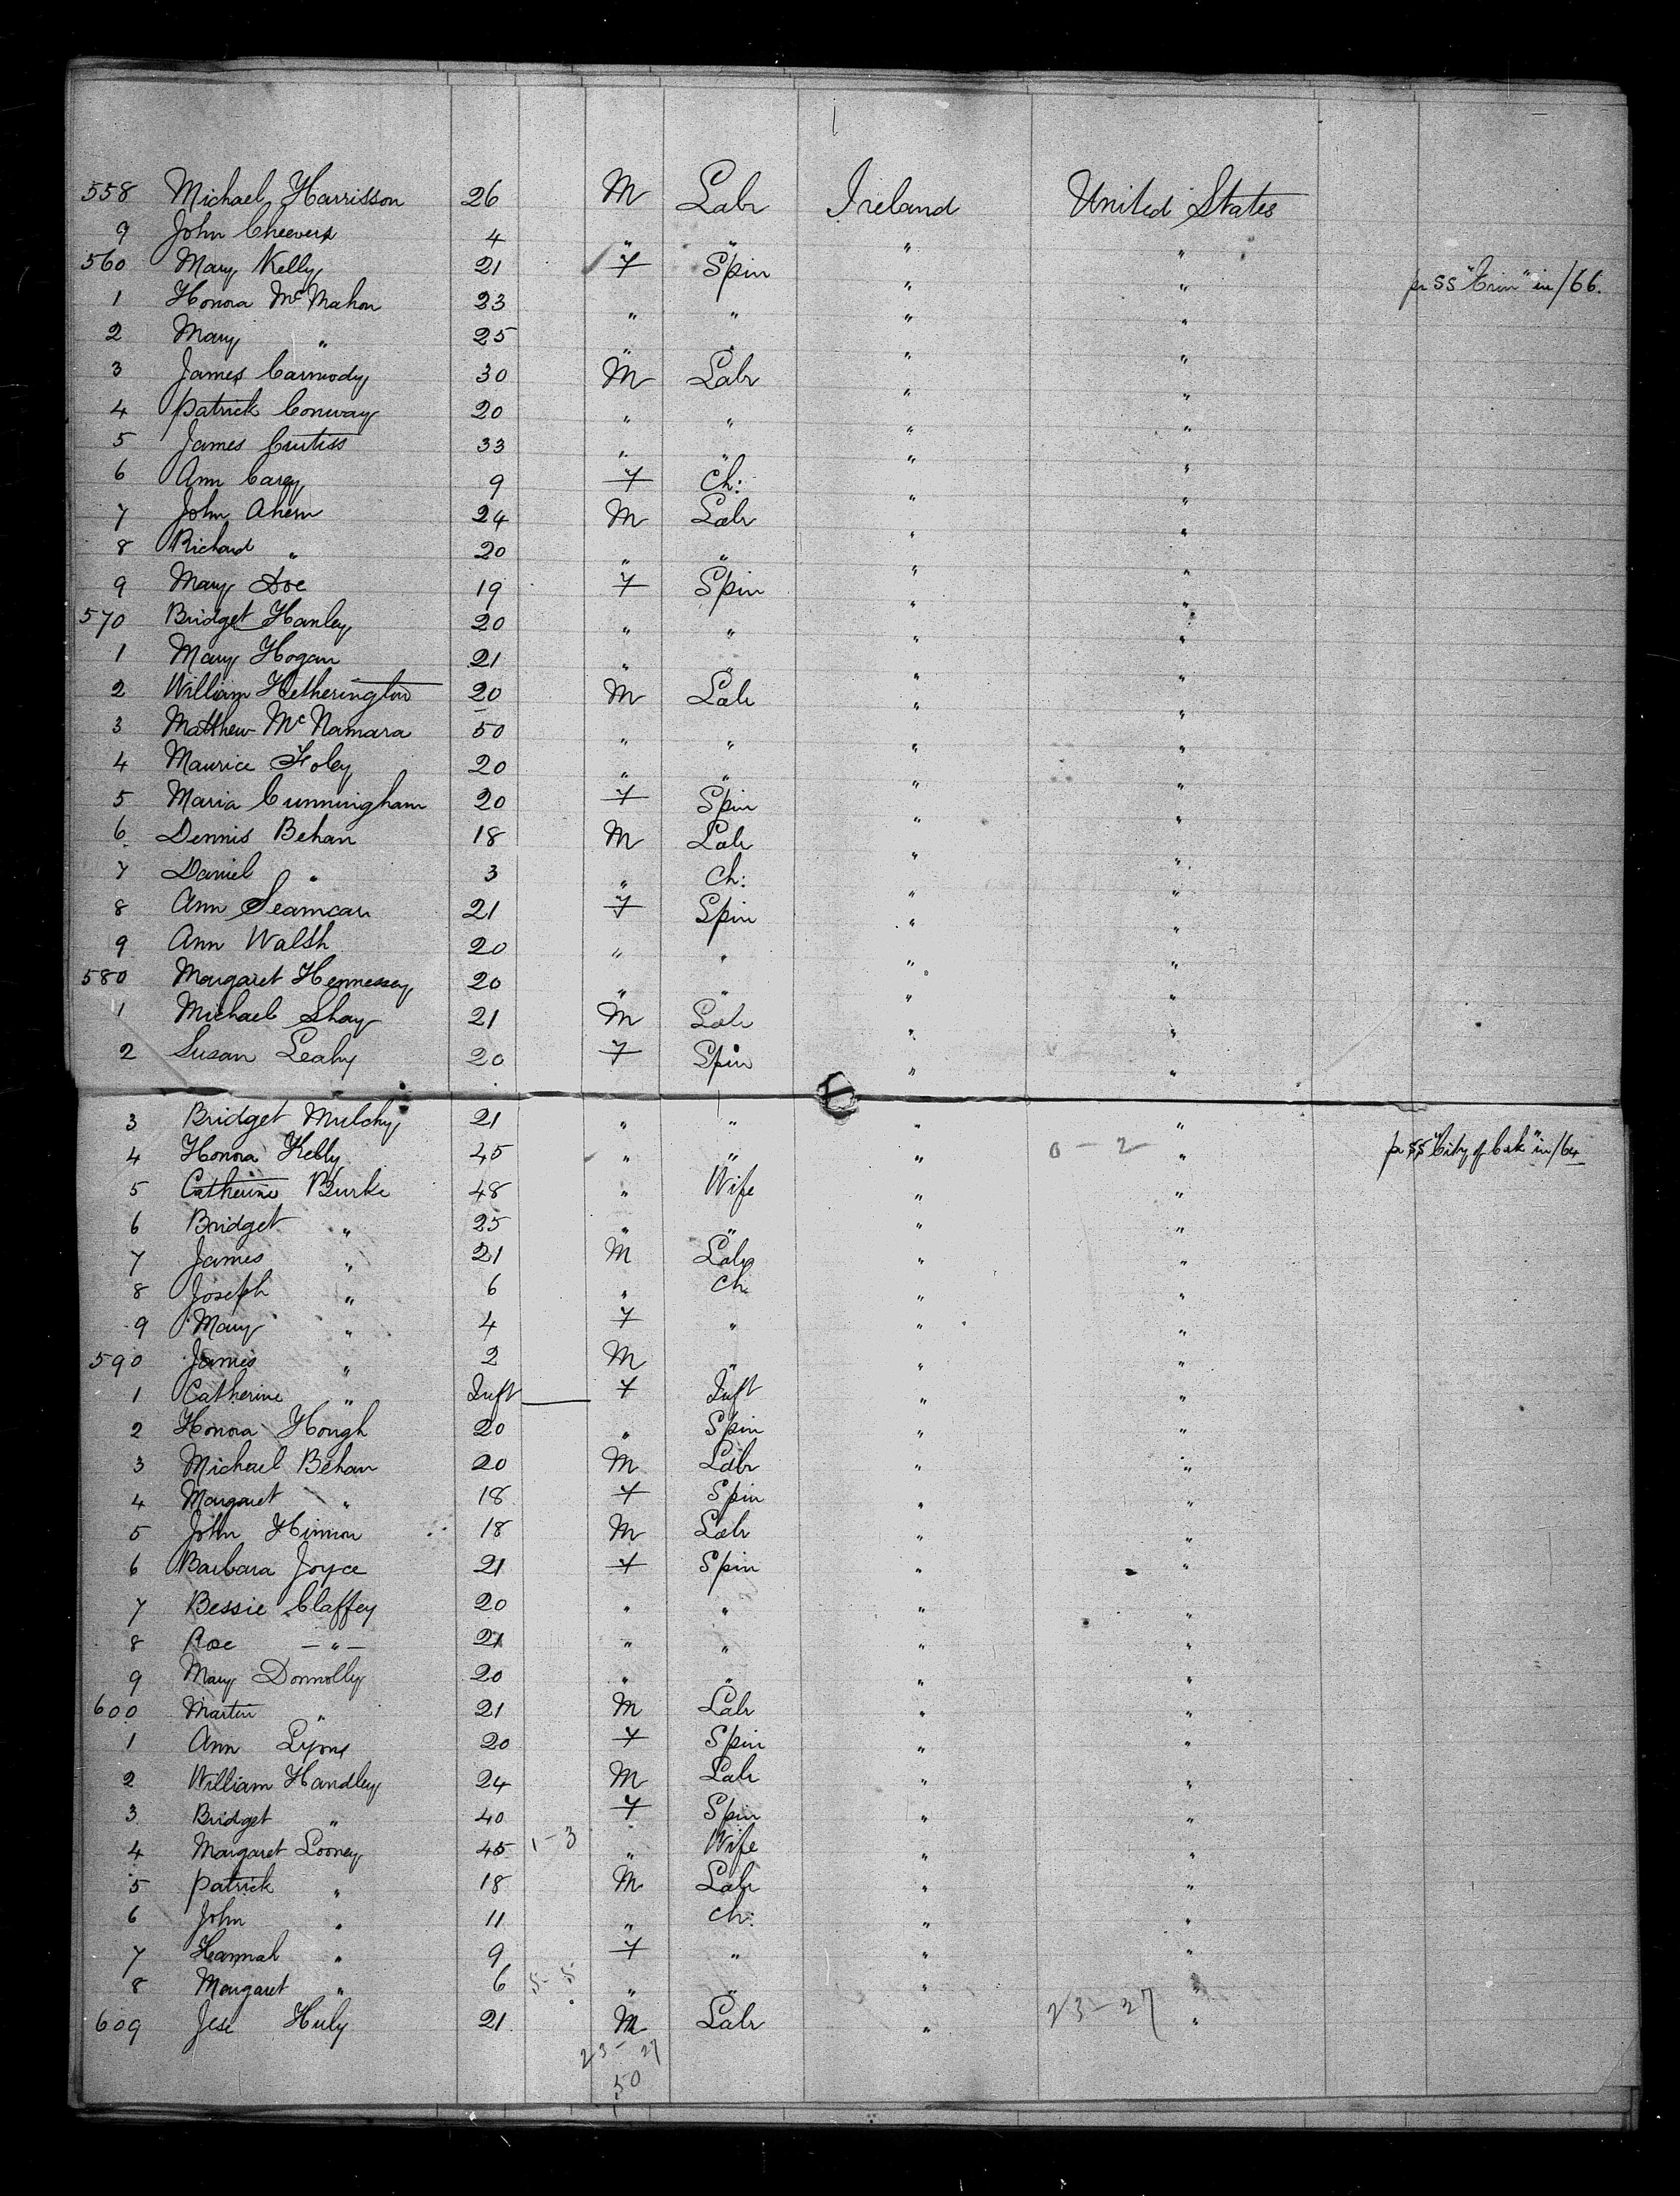 558 Michael Harrisson 26 M Labr Ireland United States
9 John Cheevers 4 " " " "
560 Mary Kelly 21 F Spin " " pr SS "Erin" in /66.
1 Honora McMahon 23 " " " "
2 Mary " 25 " " " "
3 James Carmody 30 M Labr " "
4 Patrick Conway 20 " " " "
5 James Curtiss 33 " " " "
6 Ann Carey 9 F Ch: " "
7 John Ahern 24 M Labr " "
8 Richard " 20 " " " "
9 Mary Doe 19 F Spin " "
570 Bridget Hanley 20 " " " "
1 Mary Hogan 21 " " " "
2 William Hetherington 20 M Labr " "
3 Matthew McNamara 50 " " " "
4 Maurice Foley 20 " " " "
5 Maria Cunningham 20 F Spin " "
6 Dennis Behan 18 M Labr " "
7 Daniel " 3 " Ch: " "
8 Ann 21 F Spin " "
9 Ann Walsh 20 " " " "
580 Margaret Hennessey 20 " " " "
1 Michael Shay 21 M Labr " "
2 Susan Leahy 20 F Spin " "
3 Bridget Mulchy 21 " " " "
4 Honora Kelly 45 " " " 0-2 " pr SS "City of Cork" in /64
5 Catherine Burke 48 " Wife " "
6 Bridget " 25 " " " "
7 James " 21 M Labr " "
8 Joseph " 6 " Ch. " "
9 Mary " 4 F " " "
590 James " 2 M " " "
1 Catherine " Inft F Inft " "
2 Honora Hough 20 " Spin " "
3 Michael Behan 20 M Labr " "
4 Margaret " 18 F Spin " "
5 John 18 M Labr " "
6 Barbara Joyce 21 F Spin " "
7 Bessie Claffey 20 " " " "
8 Rose -"- 21 " " " "
9 Mary Donnolly 20 " " " "
600 Martin " 21 M Labr " "
1 Ann Lyons 20 F Spin " "
2 William Handley 24 M Labr " "
3 Bridget " 40 F Spin " "
4 Margaret Looney 45 1-3 " Wife " "
5 Patrick " 18 M Labr " "
6 John " 11 " Ch: " "
7 Hannah " 9 F " " "
8 Margaret " 6 5-5 " " " "
609 Jese Huly 21 M Labr " 23-27 "
23-27
50